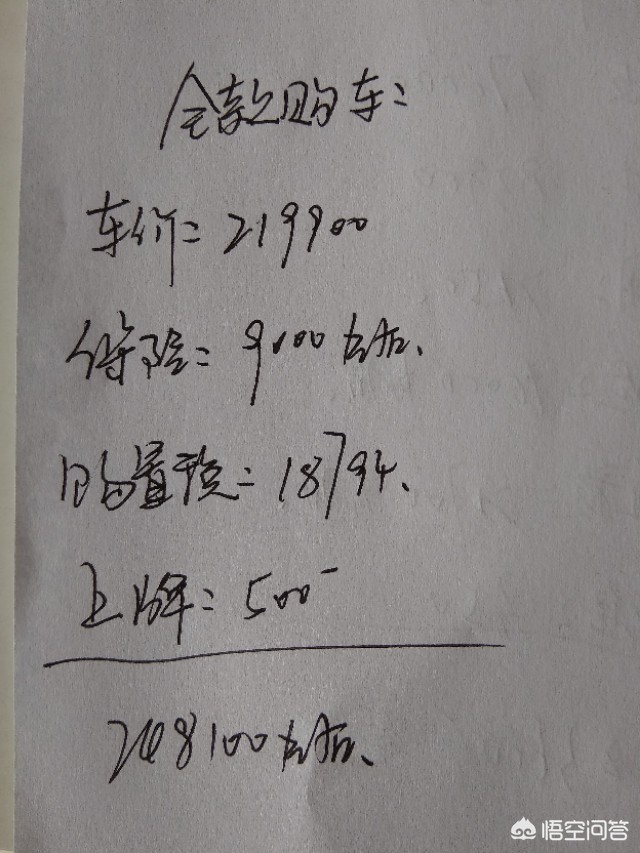 全款购车:
车价: 219900
保险: 9000左右、
购置税: 18794、
上牌: 500
248100左右、
悟空问答